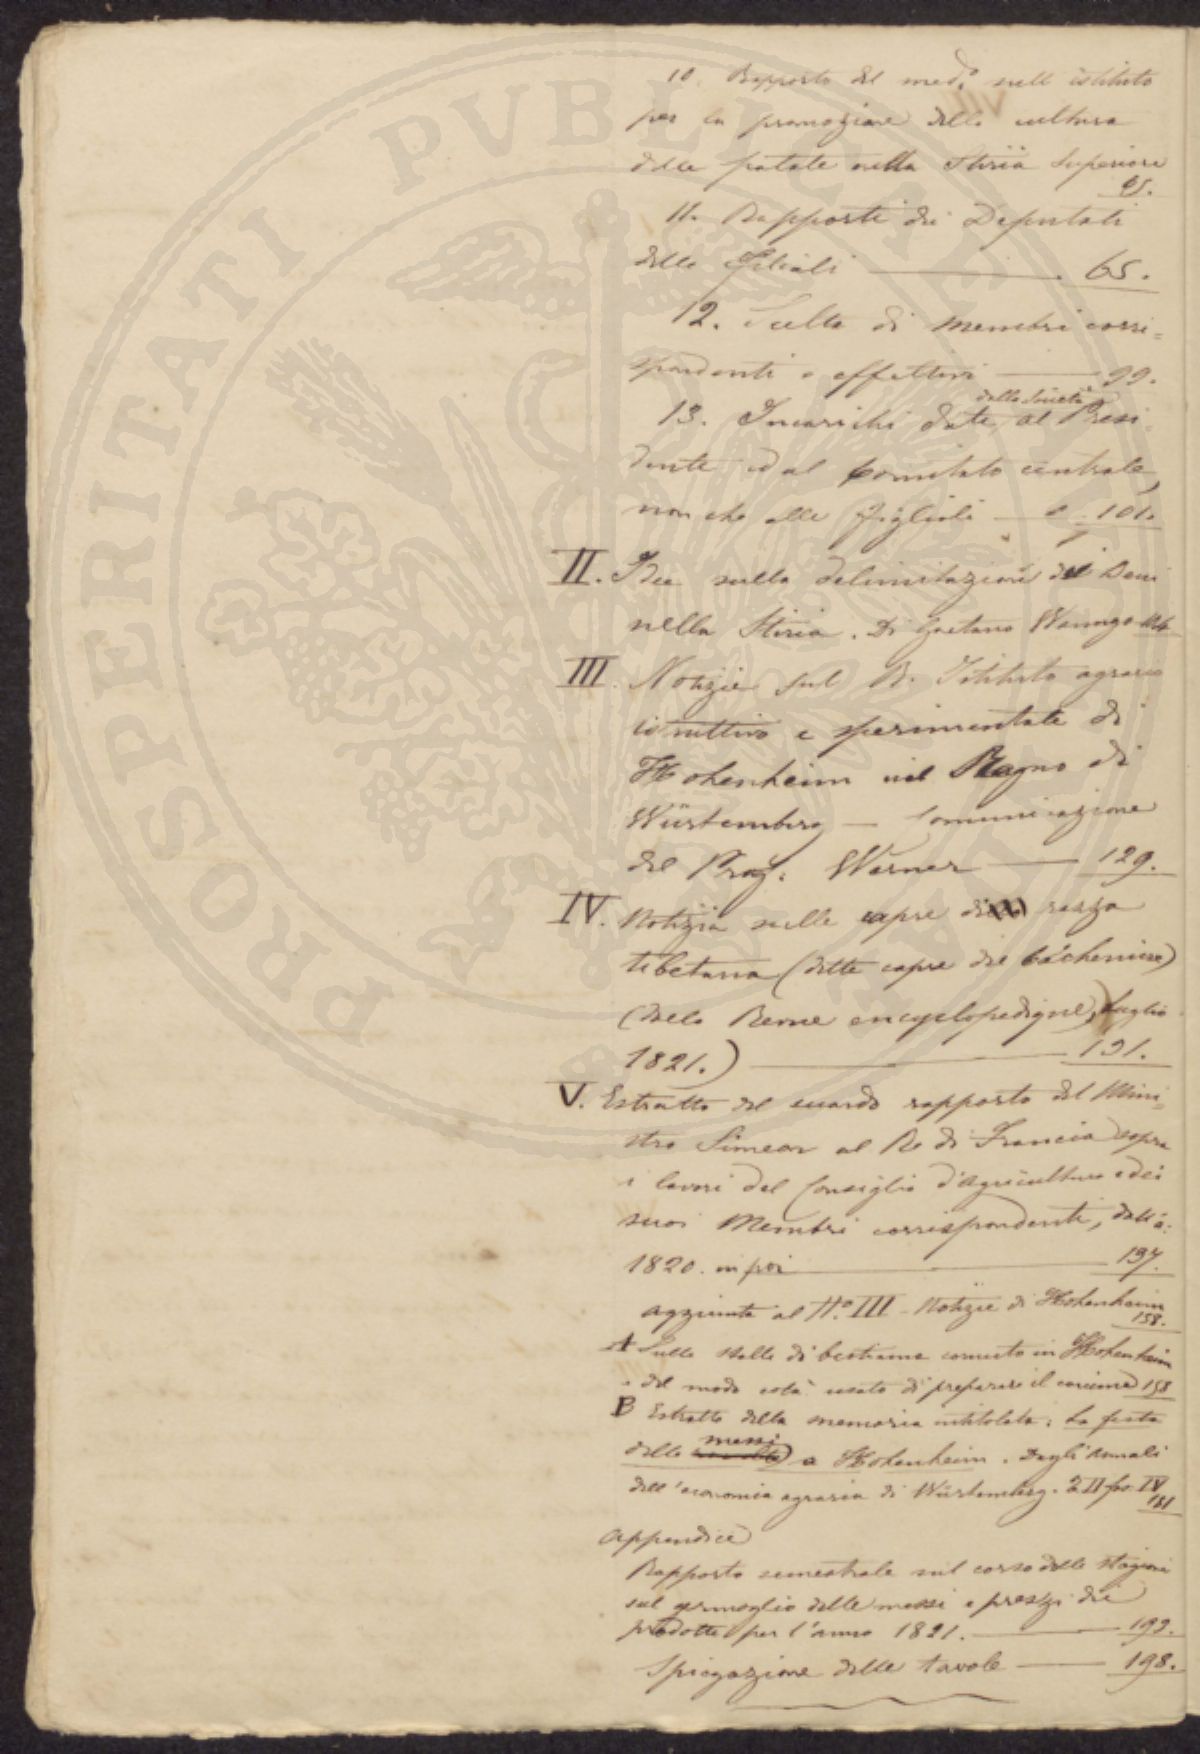 10. Rapporto del med.º sull' istituto
per la promozione della cultura
delle patate nella Stiria Superiore
95.
11. Rapporti dei Deputati
delle Filiali 65.
12. Scelta di membri corri=
spondenti e effettivi 99.
dalla Società
13. Incarichi date al Presi=
dente ed al Comitato centrale,
non che alle figliali 101.
II. Idee sulla delimitazione dei Beni
nella Stiria. Di Gaetano Wanngo
III. Notizie sul R. Istituto agrario
istruttivo e sperimentale di
Hohenheim nel Regno di
Würtemberg — Comunicazione
del Prof: Werner 129.
IV. Notizia sulle capre di razza
tibetana (dette capre di Cachemire)
(dalla Revue encyclopedique, Luglio
1821.) 131.
V. Estratto del secondo rapporto del Mini=
stro Simeon al Re di Francia sopra
i lavori del Consiglio d'Agricultura e dei
suoi Membri corrispondenti, dall' a:
1820. in poi 137.
Aggiunte al N.º III - Notizie di Hohenheim
158.
A Sulle stalle di bestiame cornuto in Hohenheim
e del modo colà usato di preparare il concime 158
B Estratto della memoria intitolata: La festa
messi
delle a Hohenheim. Dagli Annali
dell'economia agraria di Würtemberg. 2 II fas. IV
181
Appendice
Rapporto semestrale sul corso delle stagioni
sul germoglio delle messi e prezzi dei
prodotti per l'anno 1821. 192.
Spiegazione delle tavole 198.
PROSPERITATI PVBLICAE